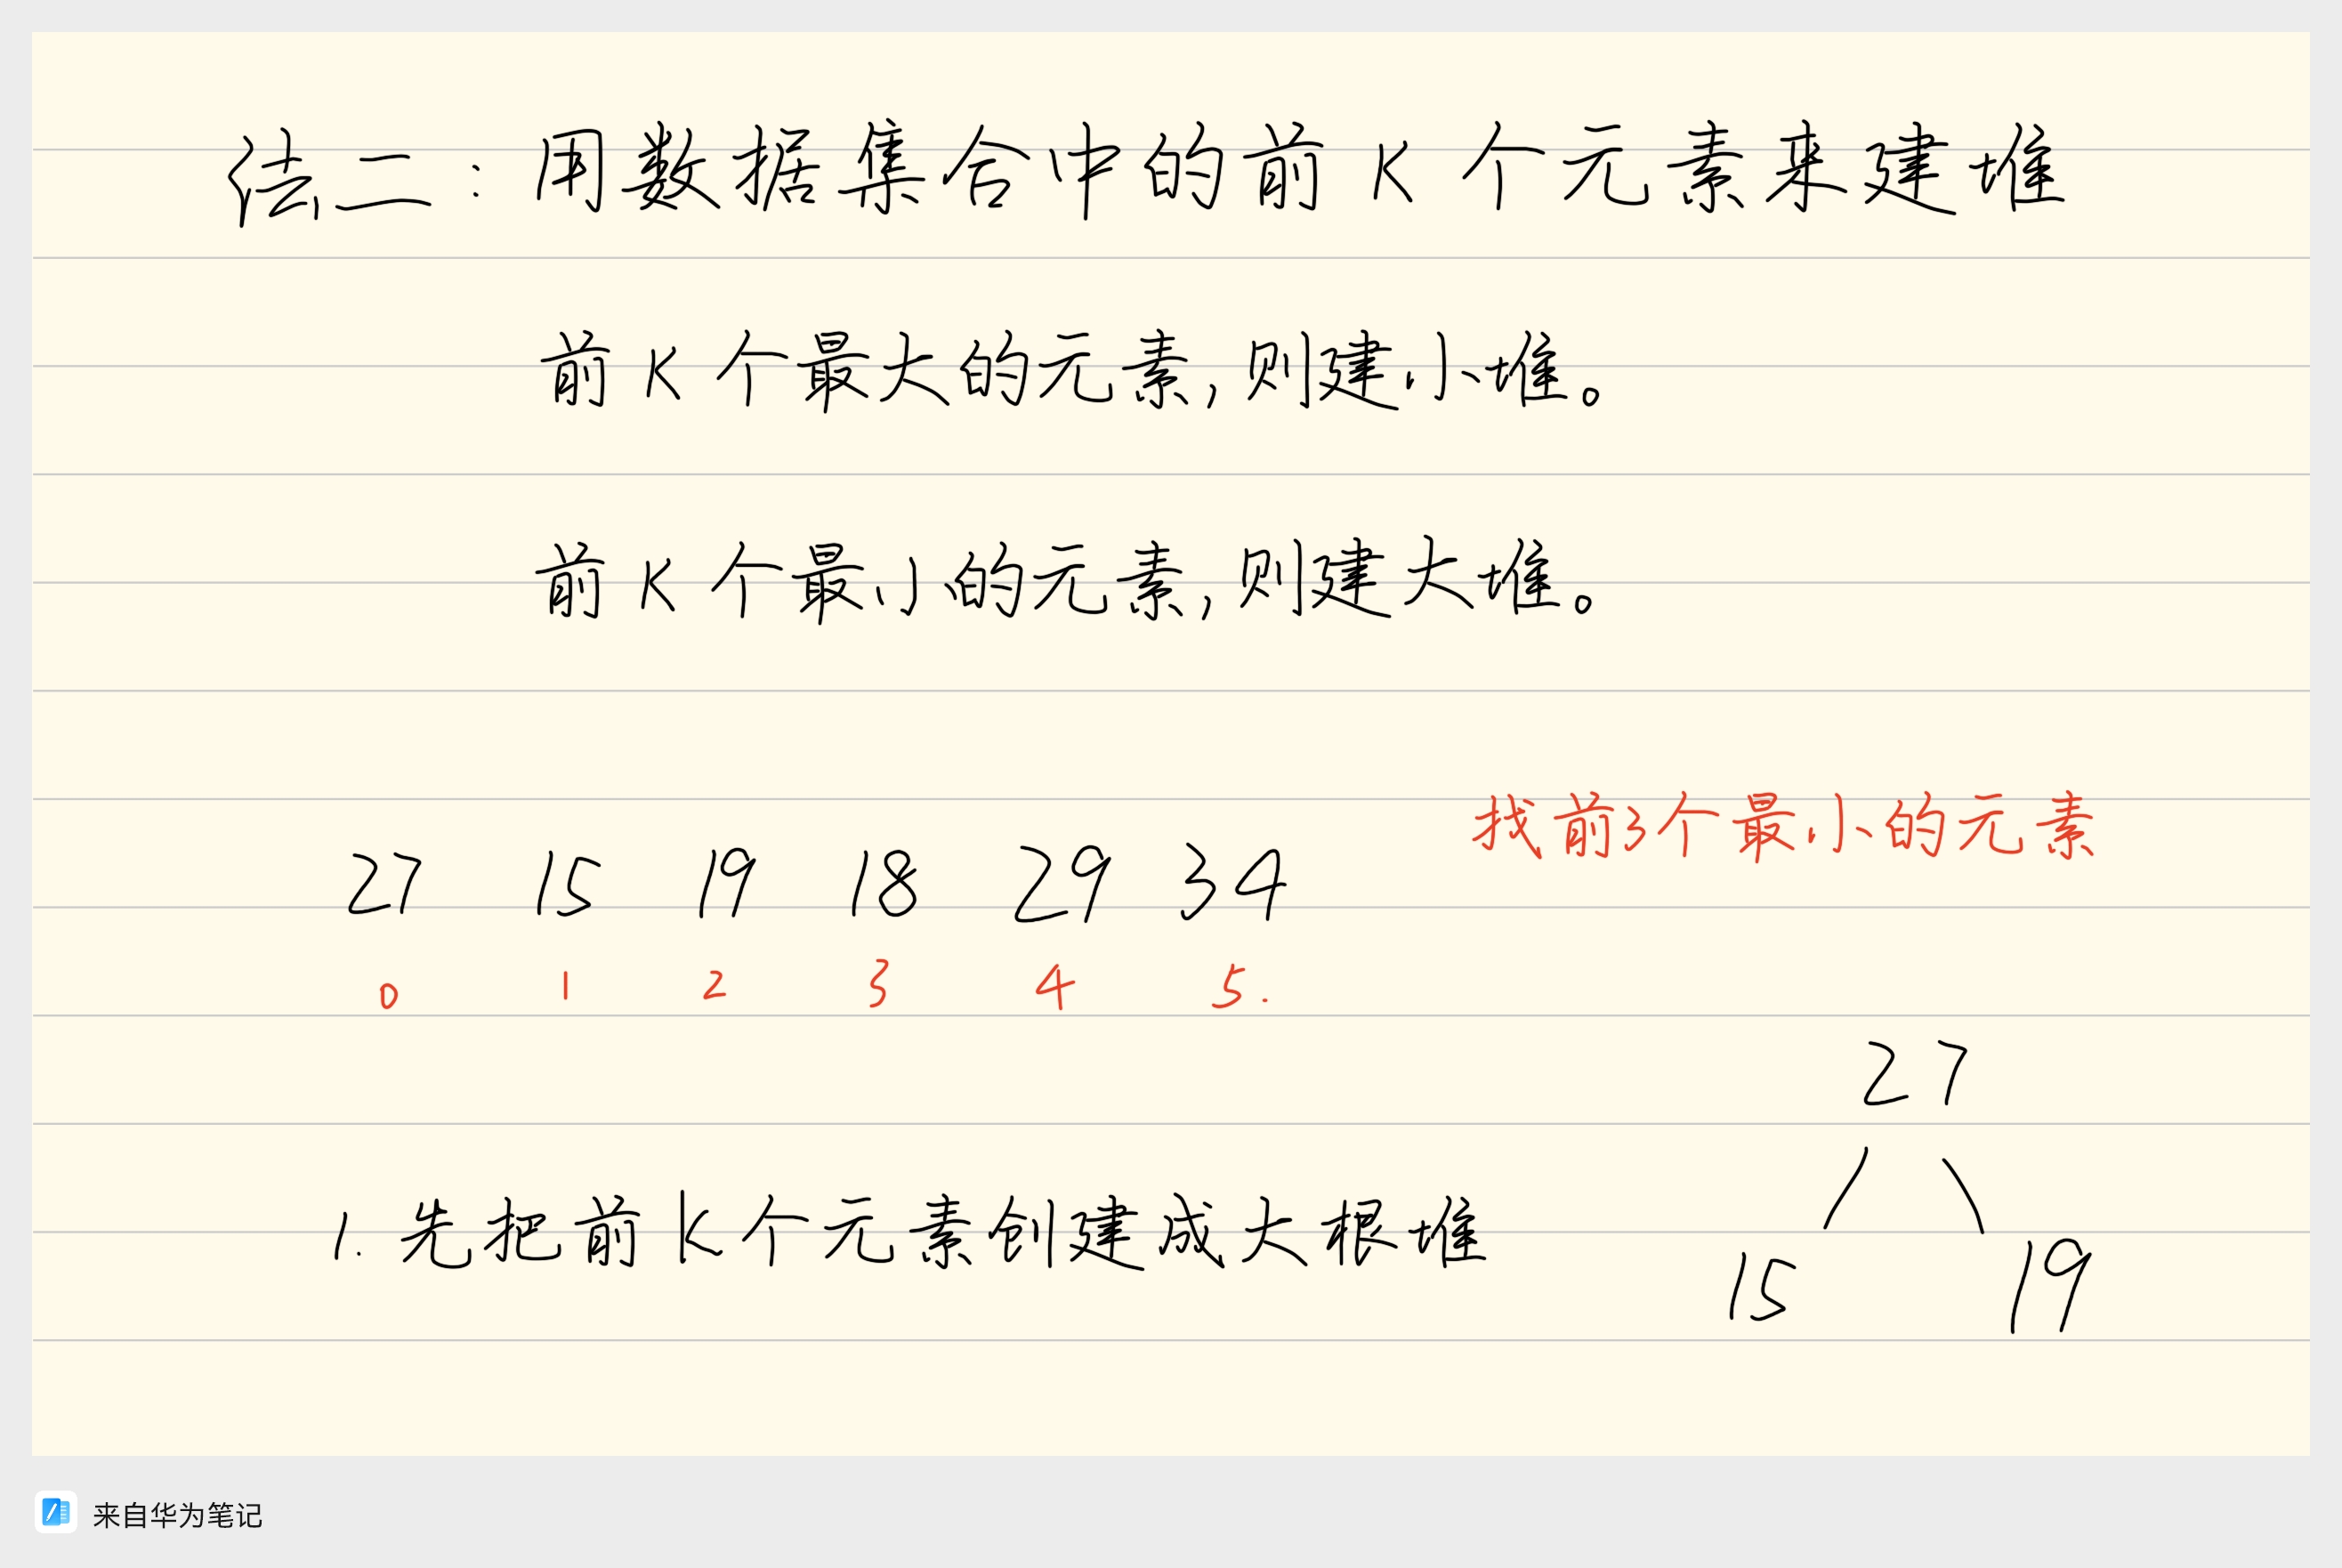 法二：用数据集合中的前K个元素来建堆
前K个最大的元素，则建小堆。
前K个最小的元素，则建大堆。
找前3个最小的元素
27 15 19 18 29 34
0 1 2 3 4 5.
27
1. 先把前K个元素创建成大根堆
15 19
来自华为笔记